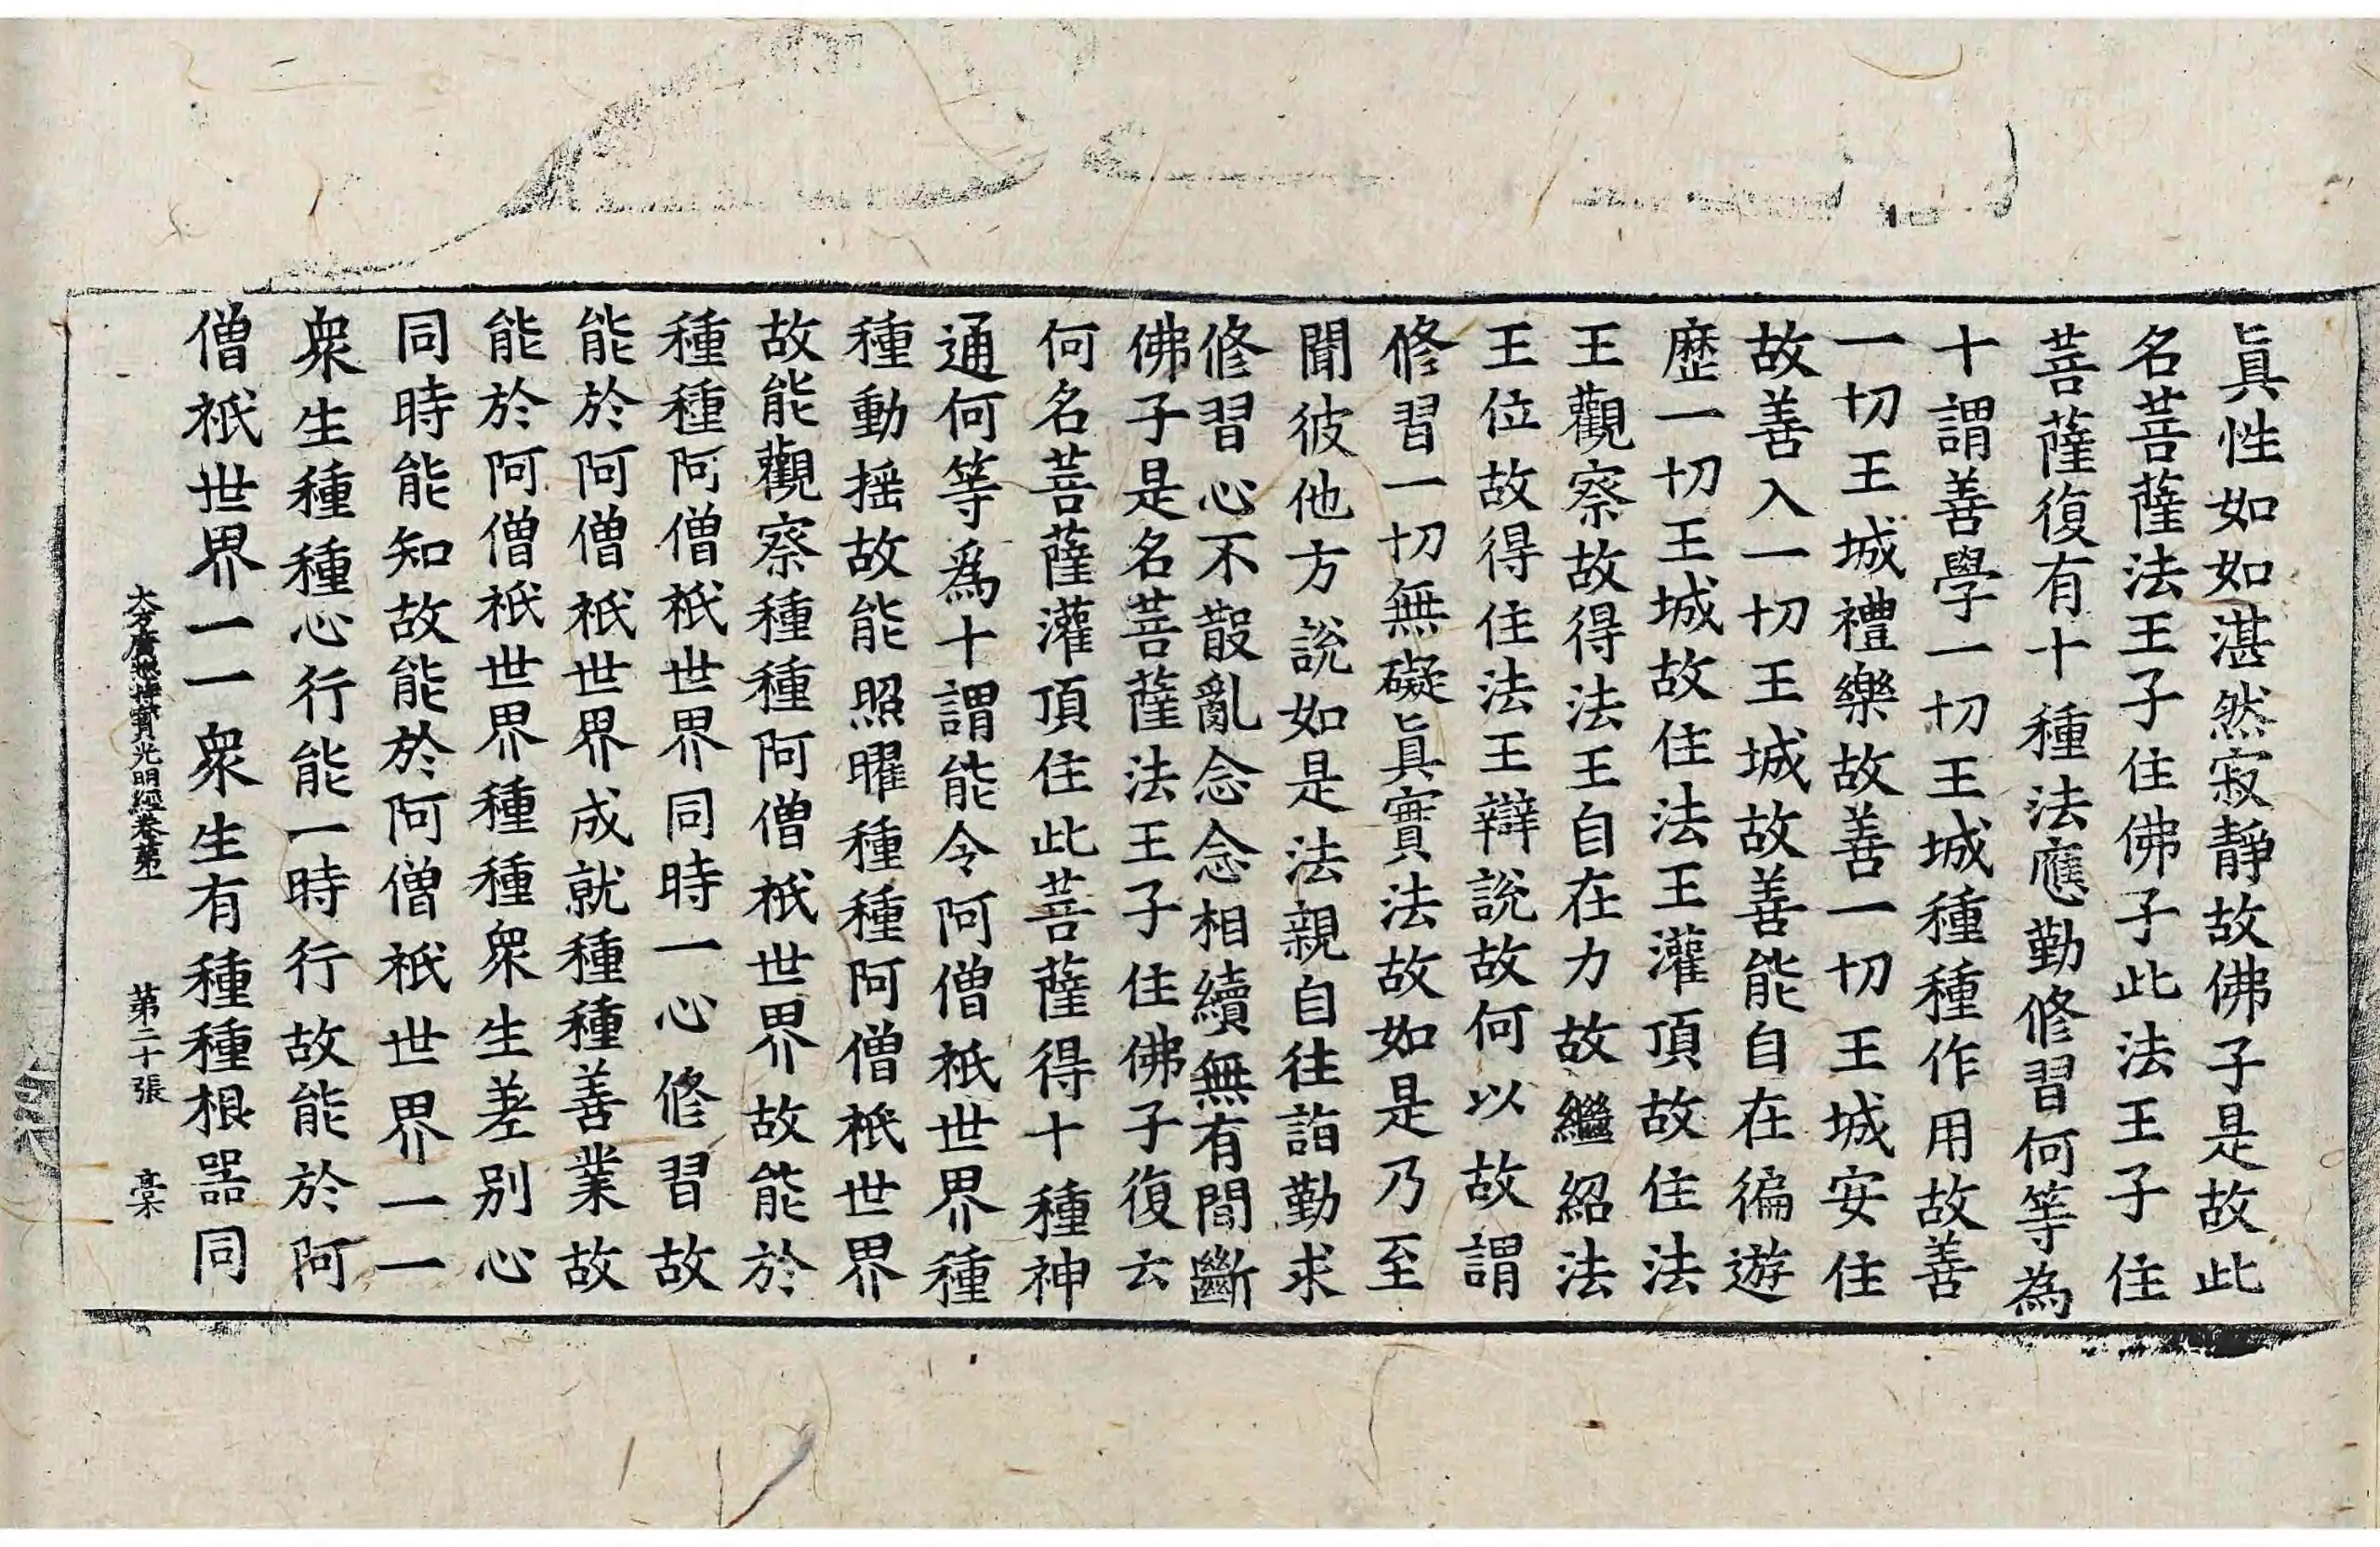 眞性如如湛然寂靜故佛子是故此
名菩薩法王子住佛子此法王子住
菩薩復有十種法應勤修習何等為
十謂善學一切王城種種作用故善
一切王城禮樂故善一切王城安住
故善入一切王城故善能自在徧遊
歷一切王城故住法王灌頂故住法
王觀察故得法王自在力故繼紹法
王位故得住法王辯説故何以故謂
修習一切無礙眞實法故如是乃至
聞彼他方説如是法親自往詣勤求
修習心不散亂念念相續無有間斷
佛子是名菩薩法王子住佛子復云
何名菩薩灌頂住此菩薩得十種神
通何等爲十謂能令阿僧祇世界種
種動摇故能照曜種種阿僧祇世界
故能觀察種種阿僧祇世界故能於
種種阿僧祇世界同時一心修習故
能於阿僧祇世界成就種種善業故
能於阿僧祇世界種種衆生差别心
同時能知故能於阿僧祇世界一一
衆生種種心行能一時行故能於阿
僧祇世界一一衆生有種種根器同
大方廣揔持寳光明經卷苐一 苐二十張 槀